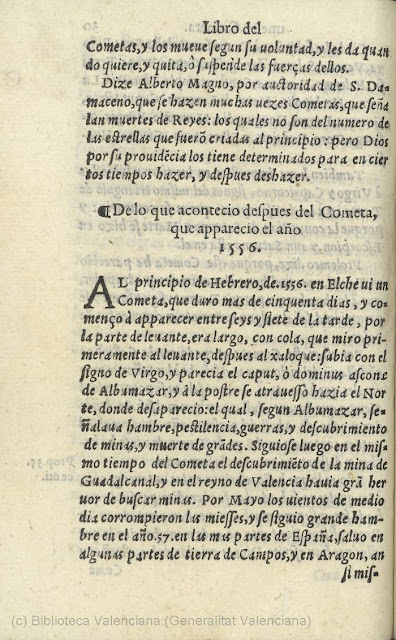 Libro del
Cometas, y los mueve segun su voluntad, y les da quan
do quiere, y quita, ò suspende las fuerças dellos.
Dize Alberto Magno, por auctoridad de S. Da-
maceno, que se hazen muchas vezes Cometas, que seña
lan muertes de Reyes: los quales no son del numero de
las estrellas que fuerõ criadas al principio: pero Dios
por su prouidẽcia los tiene determinados para en cier
tos tiempos hazer, y despues deshazer.
¶De lo que acontecio despues del Cometa,
que apparecio el año
1556.
AL principio de Hebrero, de. 1556. en Elche vi un
Cometa, que duro mas de cinquenta dias, y co-
menço à apparecer entre seys y siete de la tarde, por
la parte de leuante, era largo, con cola, que miro pri-
meramente al leuante, despues al xaloque: subia con el
signo de Virgo, y parecia el caput, ò dominus ascone
de Albumazar, y à la postre se atrauesso hazia el Nor
te, donde desaparecio: el qual, segun Albumazar, se-
ñalaua hambre, pestilencia, guerras, y descubrimiento
de minas, y muerte de grãdes. Siguiose luego en el mis
mo tiempo del Cometa el descubrimiẽto de la mina de
Guadalcanal, y en el reyno de Valencia hauia grã her
uor de buscar minas. Por Mayo los uientos de medio
dia corrompieron las miesses, y se siguio grande ham-
bre en el año. 57. en las mas partes de España, saluo en
algunas partes de tierra de Campos, y en Aragon, an
si mis-
(c) Biblioteca Valenciana (Generalitat Valenciana)